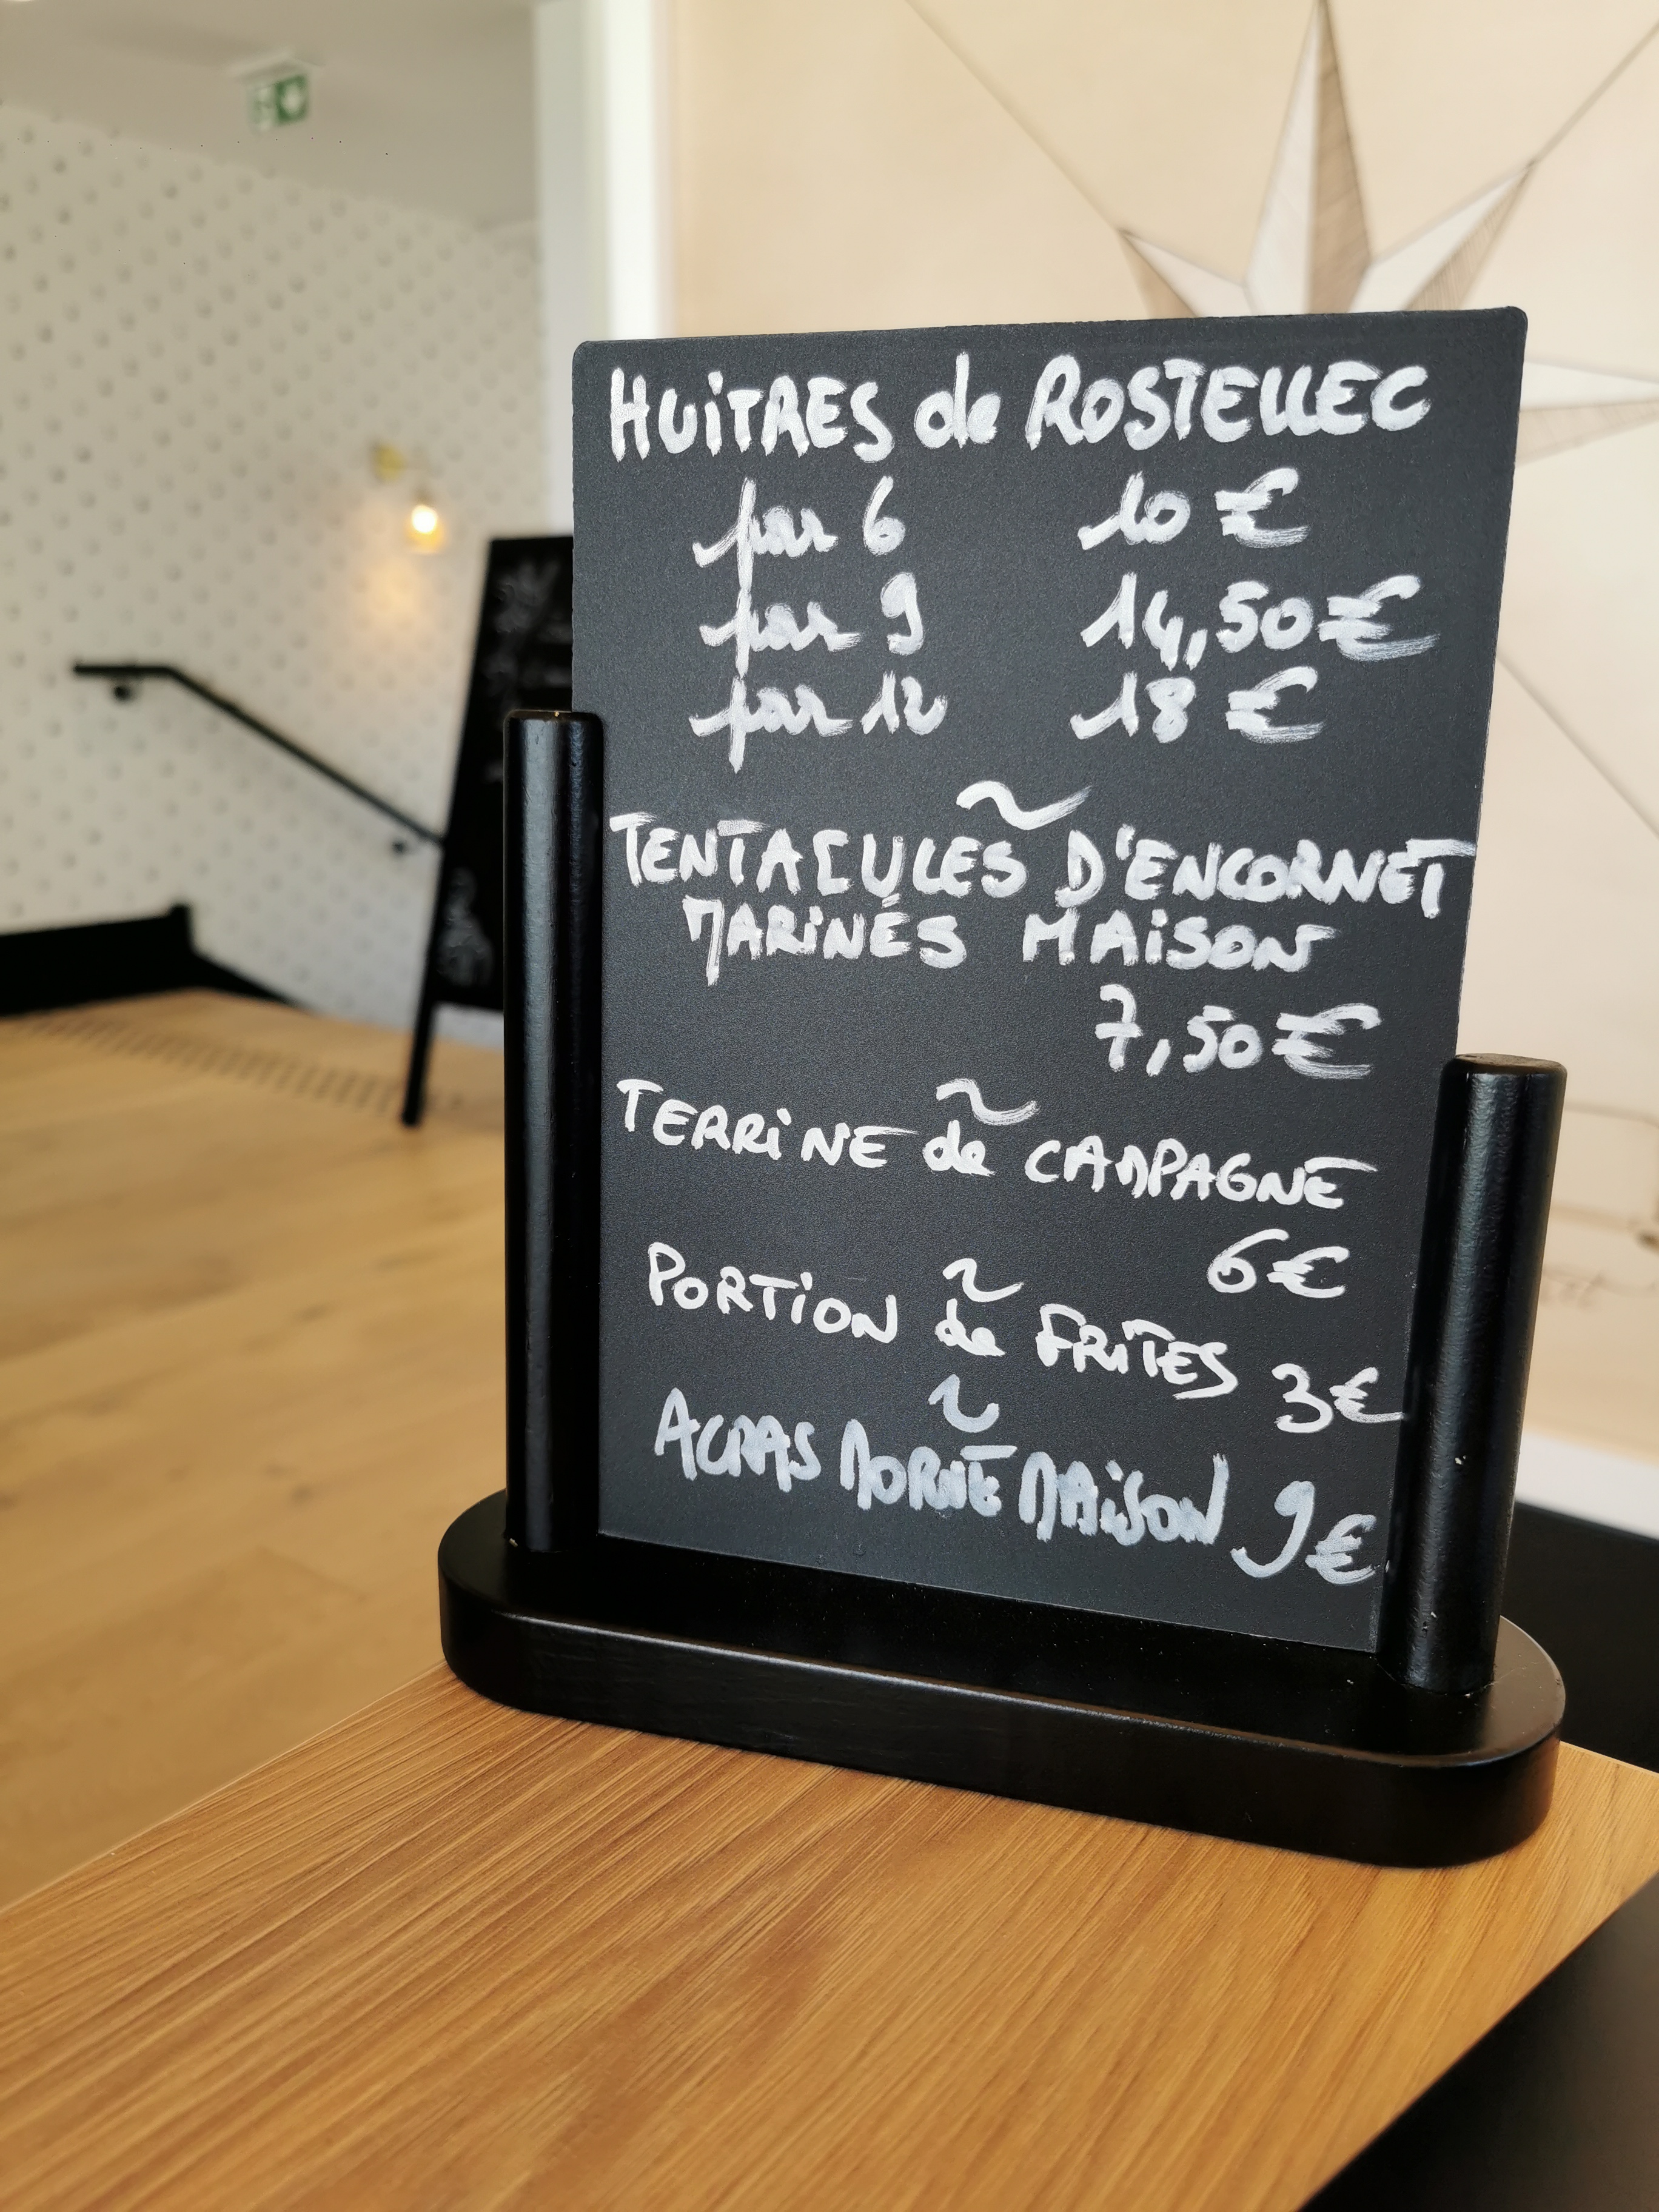 HUiTRES de ROSTELLEC
par 6 10 €
par 9 14,50 €
par 12 18 €
~
TENTACULES D'ENCORNET
MARiNÉS MAiSON
7,50 €
~
TERRiNE de CAMPAGNE
6 €
~
PORTiON de FRiTES 3 €
~
ACRAS MORUE MAiSON 9 €